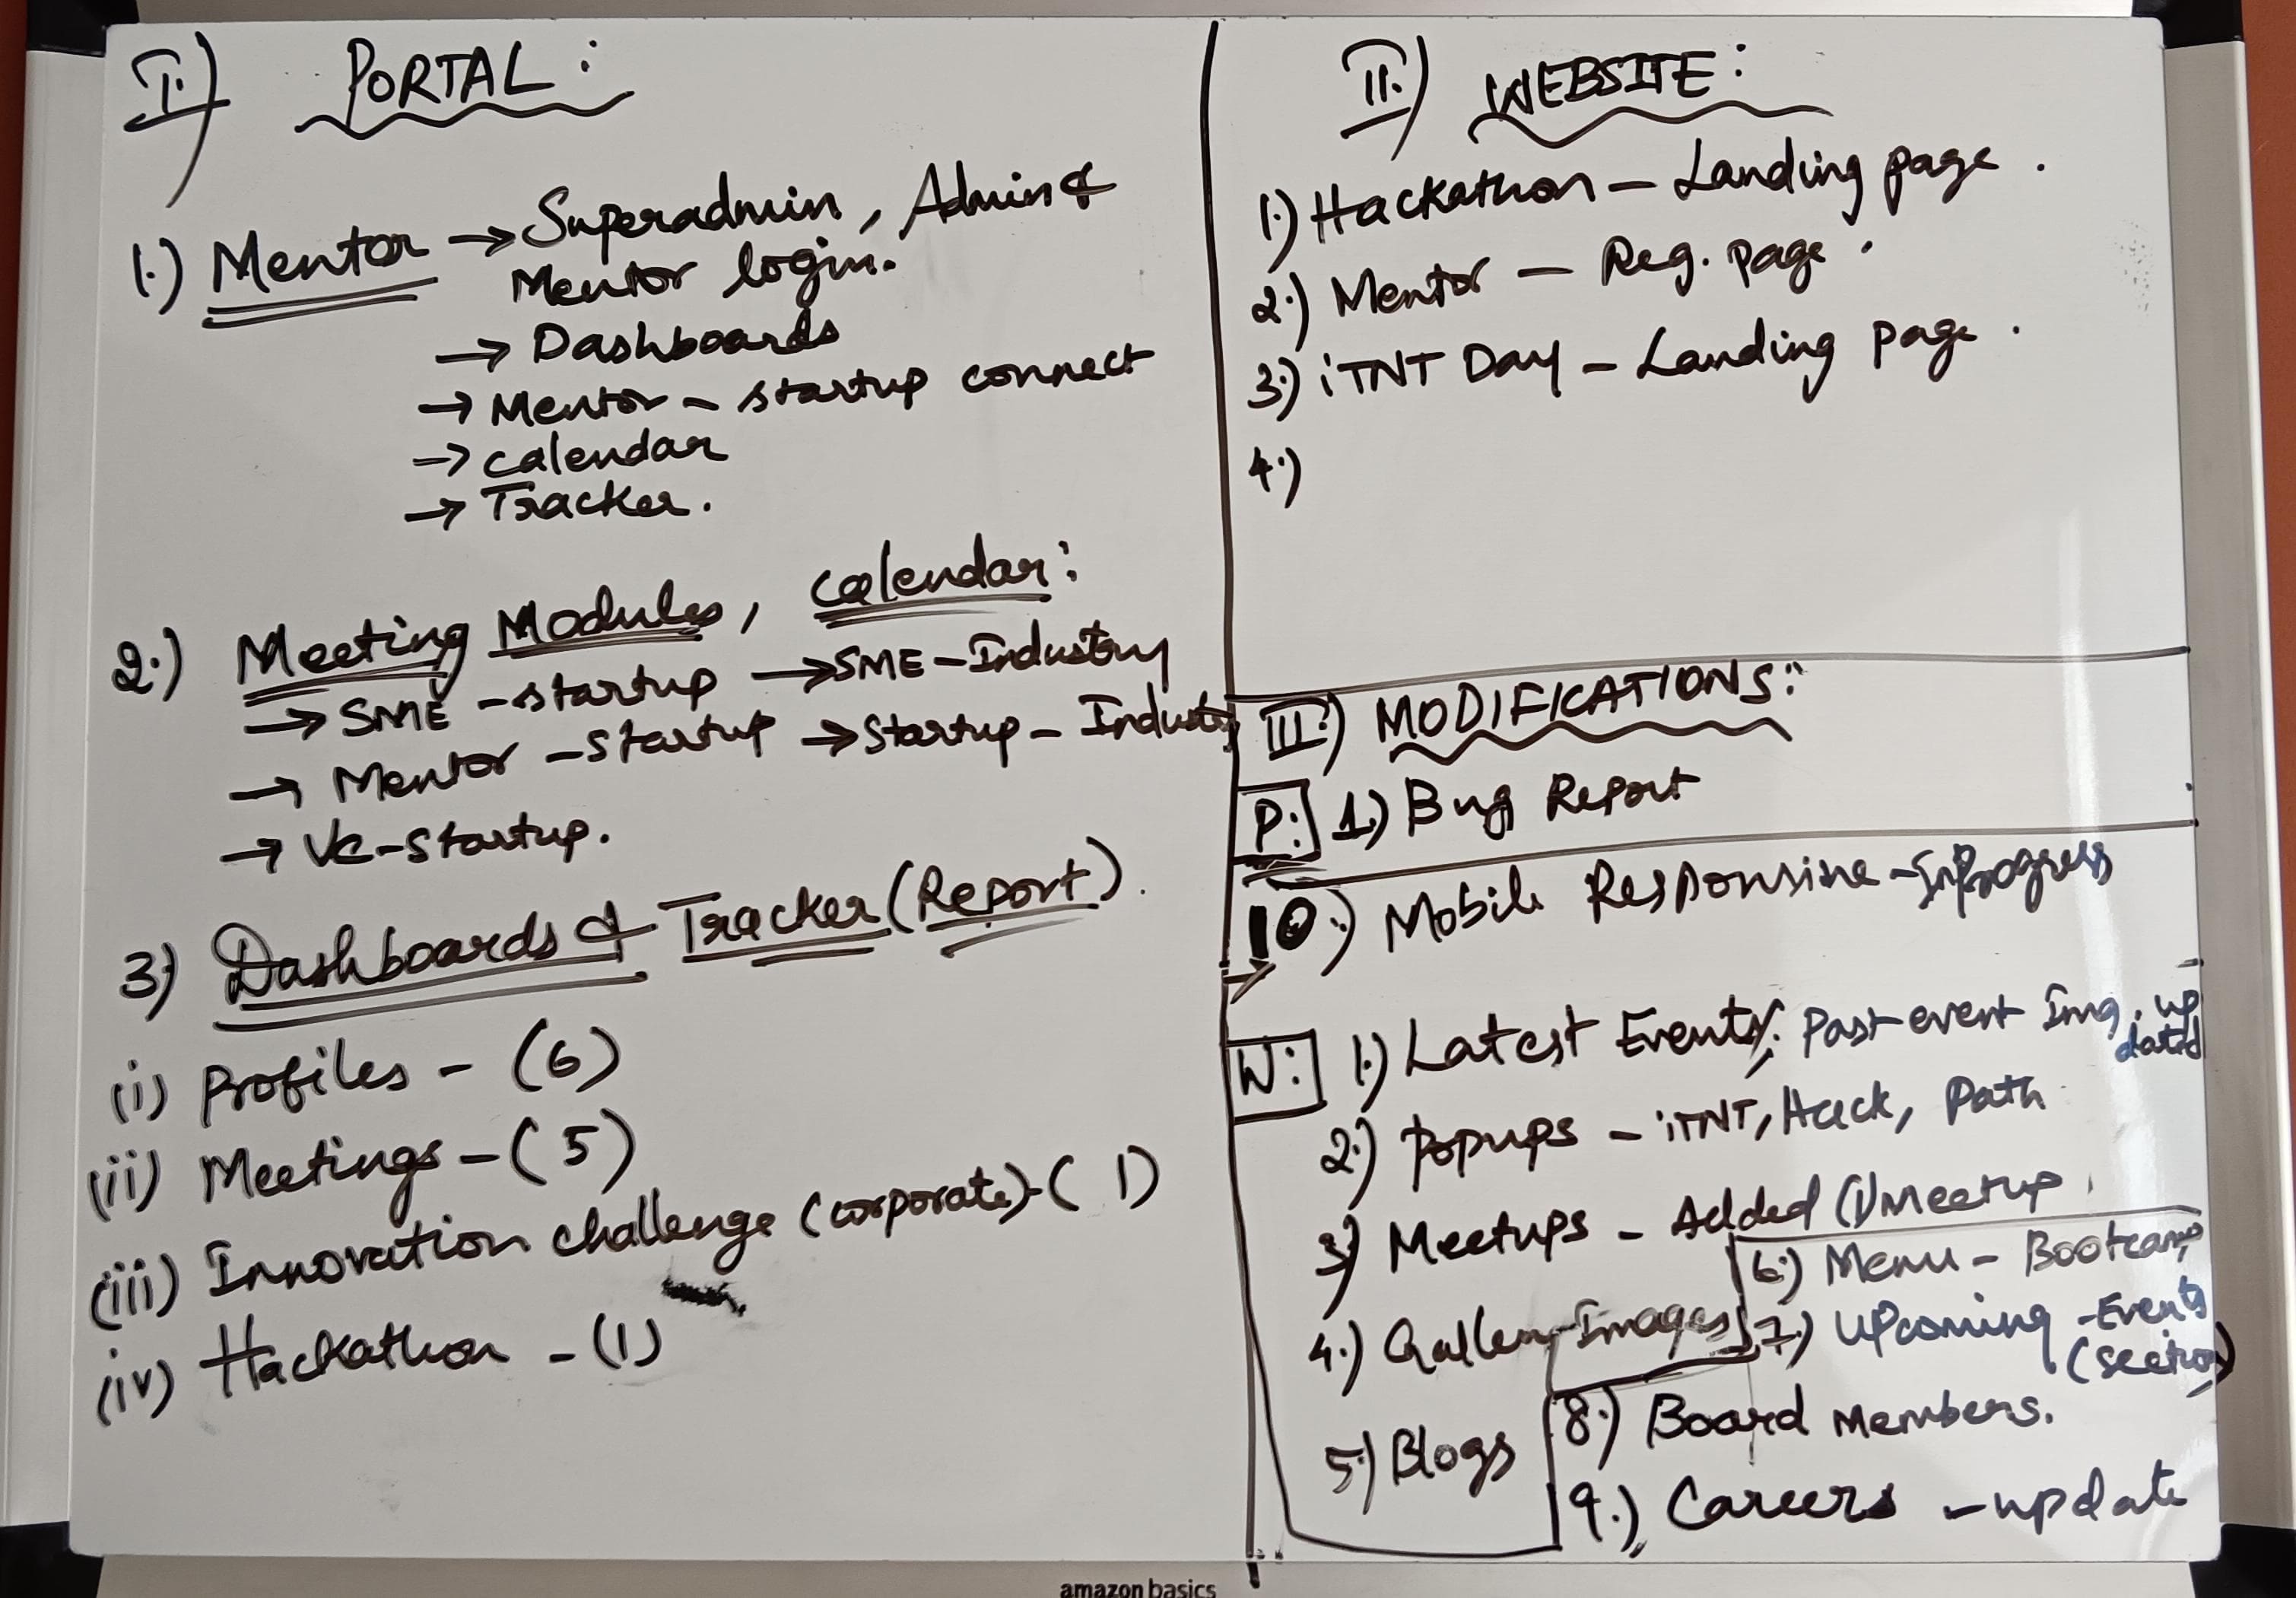 I.) PORTAL:
1.) Mentor → Superadmin, Admin &
Mentor login.
→ Dashboards
→ Mentor - startup connect
→ calendar
→ Tracker.
2.) Meeting Modules, calendar:
→ SME - startup → SME - Industry
→ Mentor - startup → Startup - Industry
→ VC - startup.
3) Dashboards & Tracker (Report).
(i) Profiles - (6)
(ii) Meetings - (5)
(iii) Innovation challenge (corporate) - (1)
(iv) Hackathon - (1)
II.) WEBSITE:
1.) Hackathon - Landing page.
2.) Mentor - Reg. page.
3.) iTNT Day - Landing page.
4.)
III.) MODIFICATIONS:
P: 1.) Bug Report
10.) Mobile Responsive - InProgress
W: 1.) Latest Events, Past event Img. up
dated
2.) Popups - iTNT, Hack, Path
3) Meetups - Added (1) Meetup.
4.) Gallery - Images
5.) Blogs
6.) Menu - Bootcamp
7.) Upcoming - Events
(section)
8.) Board Members.
9.) Careers - update
amazon basics